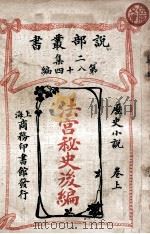 說部叢書
二集
第八十四編
歷史小說 卷上
法宮秘史後編
上海商務印書館發行